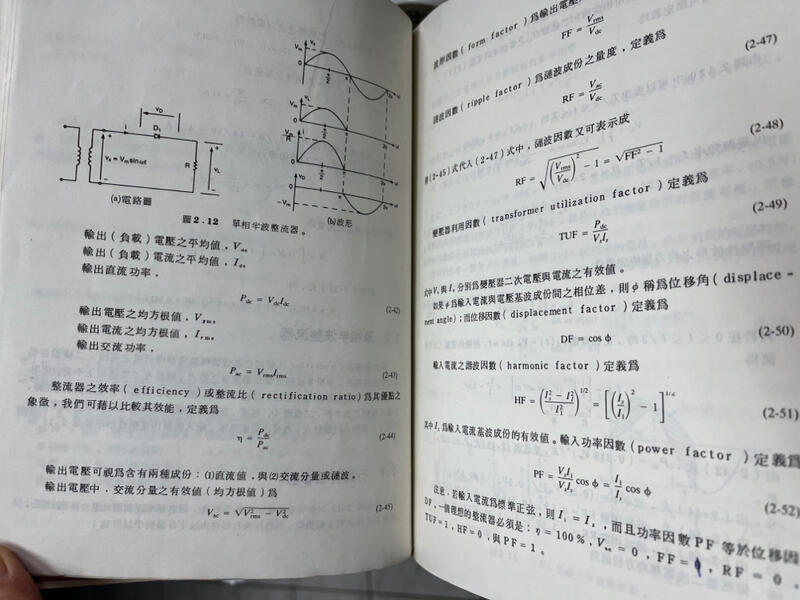 (a)電路圖
(b)波形
圖2.12 單相半波整流器。
輸出(負載)電壓之平均值,
輸出(負載)電流之平均值,
輸出直流功率,
P_dc = V_dc I_dc (2-42)
輸出電壓之均方根值,V_rms
輸出電流之均方根值,I_rms
輸出交流功率,
P_ac = V_rms I_rms (2-43)
整流器之效率(efficiency)或整流比(rectification ratio)為其優點之
象徵,我們可藉以比較其效能,定義為
η = P_dc / P_ac (2-44)
輸出電壓可視為含有兩種成份:(1)直流值,與(2)交流分量或漣波。
輸出電壓中,交流分量之有效值(均方根值)為
V_ac = √(V²_rms − V²_dc) (2-45)
波形因數(form factor)為輸出電壓
FF = V_rms / V_dc
(2-47)
漣波因數(ripple factor)為漣波成份之量度,定義為
RF = V_ac / V_dc
(2-48)
(2-45)式代入(2-47)式中,漣波因數又可表示成
RF = √((V_rms / V_dc)² − 1) = √(FF² − 1)
(2-49)
變壓器利用因數(transformer utilization factor)定義為
TUF = P_dc / V_s I_s
式中V_s與I_s分別為變壓器二次電壓與電流之有效值。
如果φ為輸入電流與電壓基波成份間之相位差,則φ稱為位移角(displace-
ment angle);而位移因數(displacement factor)定義為
(2-50)
DF = cos φ
輸入電流之諧波因數(harmonic factor)定義為
HF = ((I_s² − I_1²) / I_1²)^1/2 = [(I_s / I_1)² − 1]^1/2
(2-51)
其中I_1為輸入電流基波成份的有效值。輸入功率因數(power factor)定義為
PF = (V_s I_1 / V_s I_s) cos φ = (I_1 / I_s) cos φ
(2-52)
注意,若輸入電流為標準正弦,則I_1=I_s,而且功率因數PF等於位移因
DF,一個理想的整流器必須是:η=100%,V_ac=0,FF=1,RF=0,
TUF=1,HF=0,與PF=1。